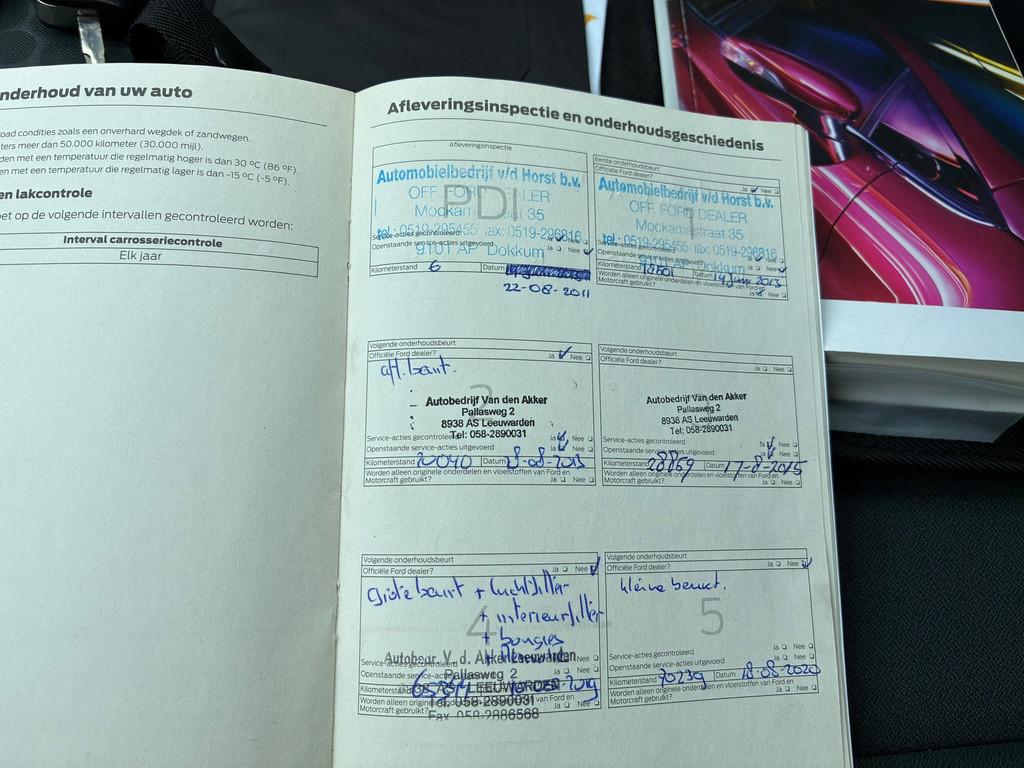 nderhoud van uw auto
oad condities zoals een onverhard wegdek of zandwegen.
ters meer dan 50.000 kilometer (30.000 mijl).
den met een temperatuur die regelmatig hoger is dan 30 ºC (86 ºF).
en met een temperatuur die regelmatig lager is dan -15 ºC (-5 ºF).
en lakcontrole
et op de volgende intervallen gecontroleerd worden:
Interval carrosseriecontrole
Elk jaar
Afleveringsinspectie en onderhoudsgeschiedenis
Afleveringsinspectie
PDI
Automobielbedrijf v/d Horst b.v.
OFF. FORD DEALER
Mockamastraat 35
tel.: 0519-295455 fax: 0519-296816
Service-acties gecontroleerd Ja Nee
Openstaande service-acties uitgevoerd Ja Nee
9101 AP Dokkum
Kilometerstand 6 Datum
22-08-2011
Eerste onderhoudsbeurt
Officiële Ford dealer? Ja Nee
Automobielbedrijf v/d Horst b.v.
OFF. FORD DEALER
Mockamastraat 35
tel.: 0519-295455 fax: 0519-296816
Openstaande service-acties uitgevoerd Ja Nee
Dokkum
Kilometerstand Datum 14 Juni 2013
Worden alleen originele onderdelen en vloeistoffen van Ford en
Motorcraft gebruikt? Ja Nee
Volgende onderhoudsbeurt
Officiële Ford dealer? Ja Nee
afl. beurt.
2
Autobedrijf Van den Akker
Pallasweg 2
8938 AS Leeuwarden
Tel: 058-2890031
Service-acties gecontroleerd Ja Nee
Openstaande service-acties uitgevoerd Ja Nee
Kilometerstand 20040 Datum -08-2013
Worden alleen originele onderdelen en vloeistoffen van Ford en
Motorcraft gebruikt? Ja Nee
Volgende onderhoudsbeurt
Officiële Ford dealer? Ja Nee
Autobedrijf Van den Akker
Pallasweg 2
8938 AS Leeuwarden
Tel: 058-2890031
Service-acties gecontroleerd Ja Nee
Openstaande service-acties uitgevoerd Ja Nee
Kilometerstand 28869 Datum 17-8-2015
Worden alleen originele onderdelen en vloeistoffen van Ford en
Motorcraft gebruikt? Ja Nee
Volgende onderhoudsbeurt
Officiële Ford dealer? Ja Nee
Grote beurt + luchtfilter
+ interieurfilter
4
+ bougies
Autobedr. V. d. Akker Leeuwarden
Service-acties gecontroleerd Nee
Openstaande service-acties Pallasweg 2 Nee
Kilometerstand AS LEEUWARDEN 2019
Worden alleen originele Tel. 058-2890031 en van Ford en
Motorcraft gebruikt? Ja Nee
Fax 058-2886568
Volgende onderhoudsbeurt
Officiële Ford dealer? Ja Nee
kleine beurt.
5
Service-acties gecontroleerd Ja Nee
Openstaande service-acties uitgevoerd Ja Nee
Kilometerstand 70239 Datum 18-08-2020
Worden alleen originele onderdelen en vloeistoffen van Ford en
Motorcraft gebruikt? Ja Nee